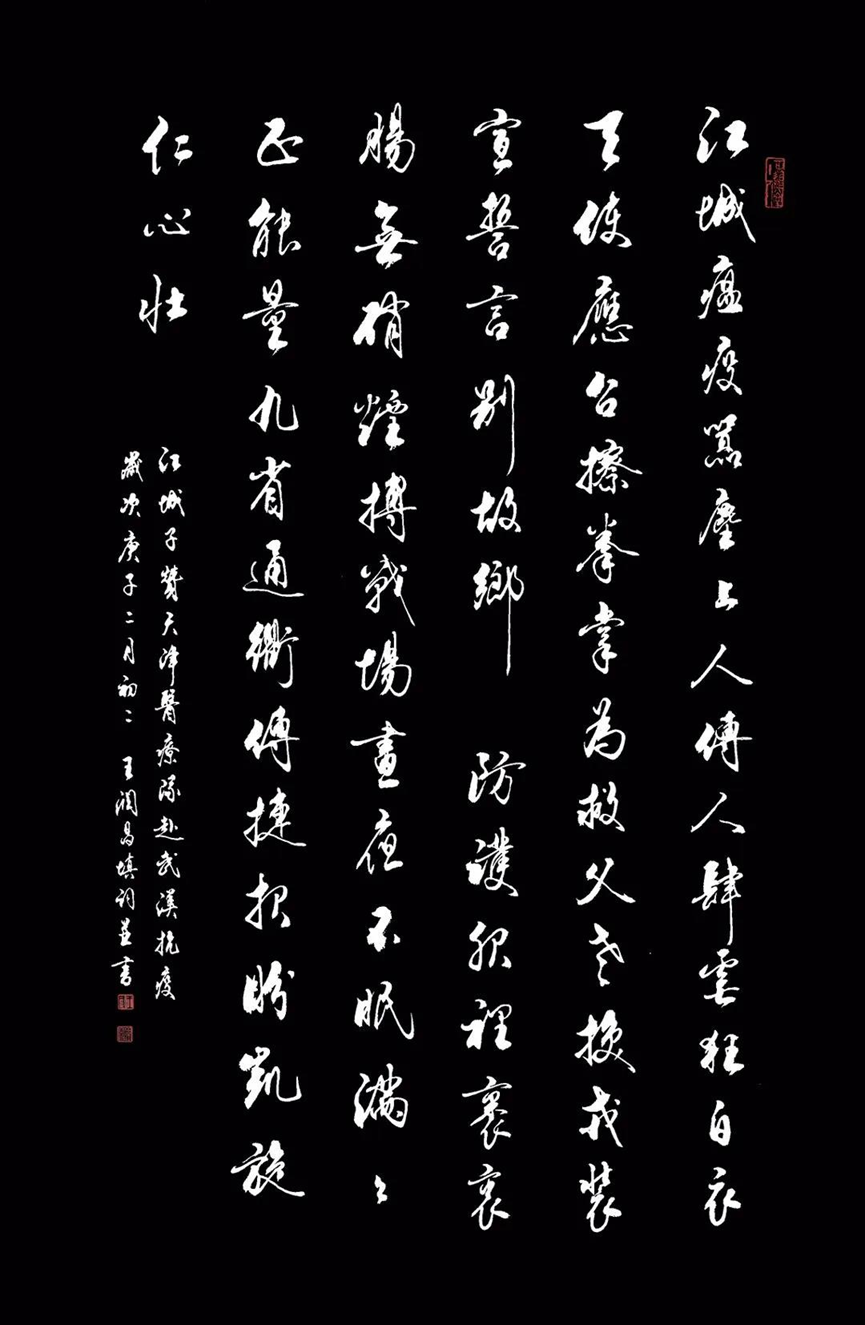 江城瘟疫囂塵上人傳人肆虐狂白衣
天使應召擦拳掌為救父老換戎裝
宣誓言別故鄉 防護服裡裹衷
腸無硝煙搏戰場晝夜不眠滿々
正能量九省通衢傳捷报盼凱旋
仁心壯
江城子贊天津醫療隊赴武漢抗疫
歲次庚子二月初二 王潤昌填詞並書